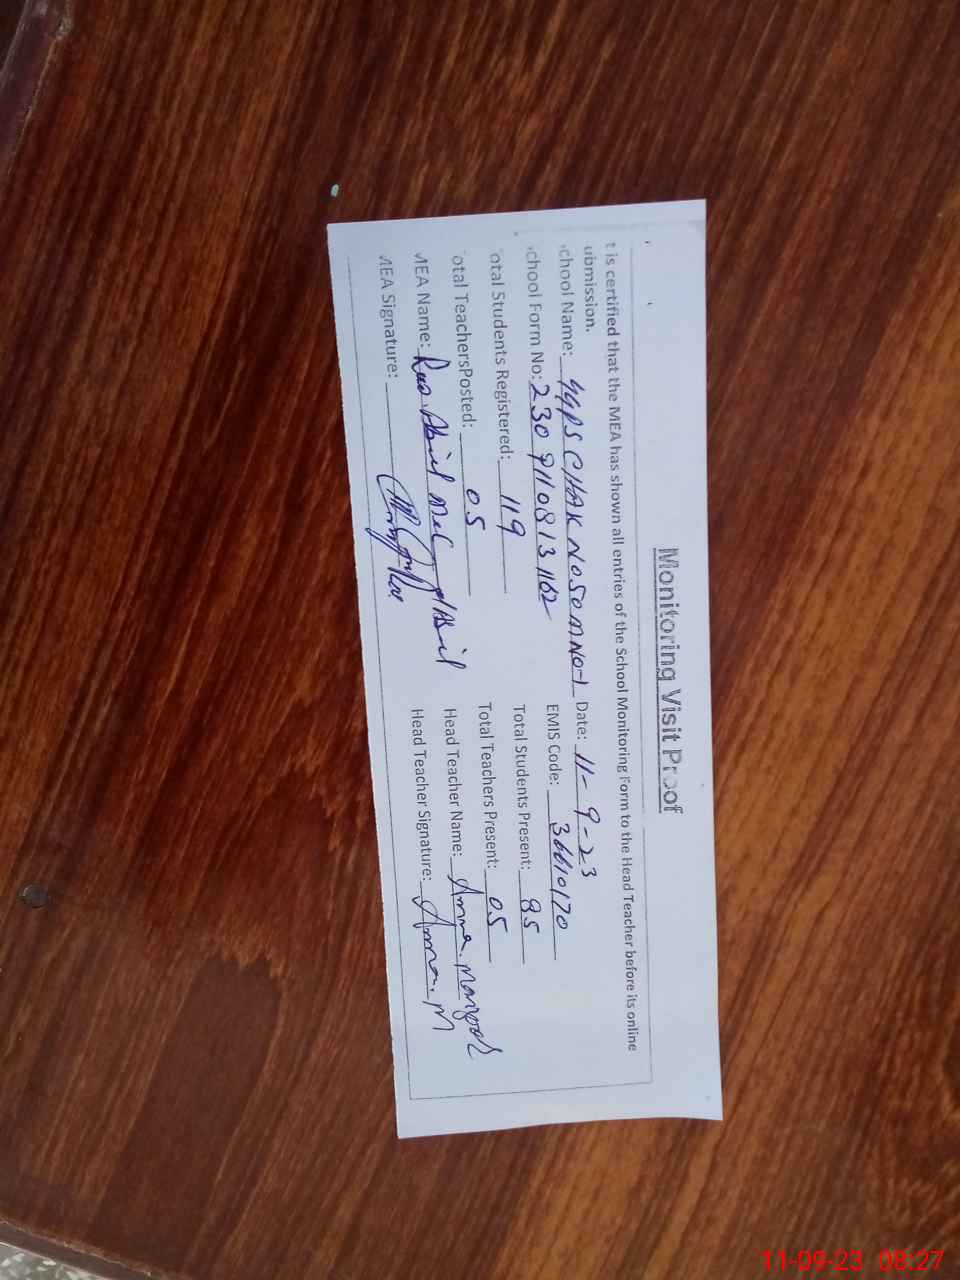 Monitoring Visit Proof
t is certified that the MEA has shown all entries of the School Monitoring Form to the Head Teacher before its online
ubmission.
chool Name: GGPS CHAK NO 50 M NO-1 Date: 11-9-23
chool Form No: 23091108131162 EMIS Code: 36610170
otal Students Registered: 119 Total Students Present: 85
otal TeachersPosted: 05 Total Teachers Present: 05
MEA Name: Rao Head Teacher Name: Amna. Manzoor
MEA Signature: Head Teacher Signature: Amna. M
11-09-23 08:27